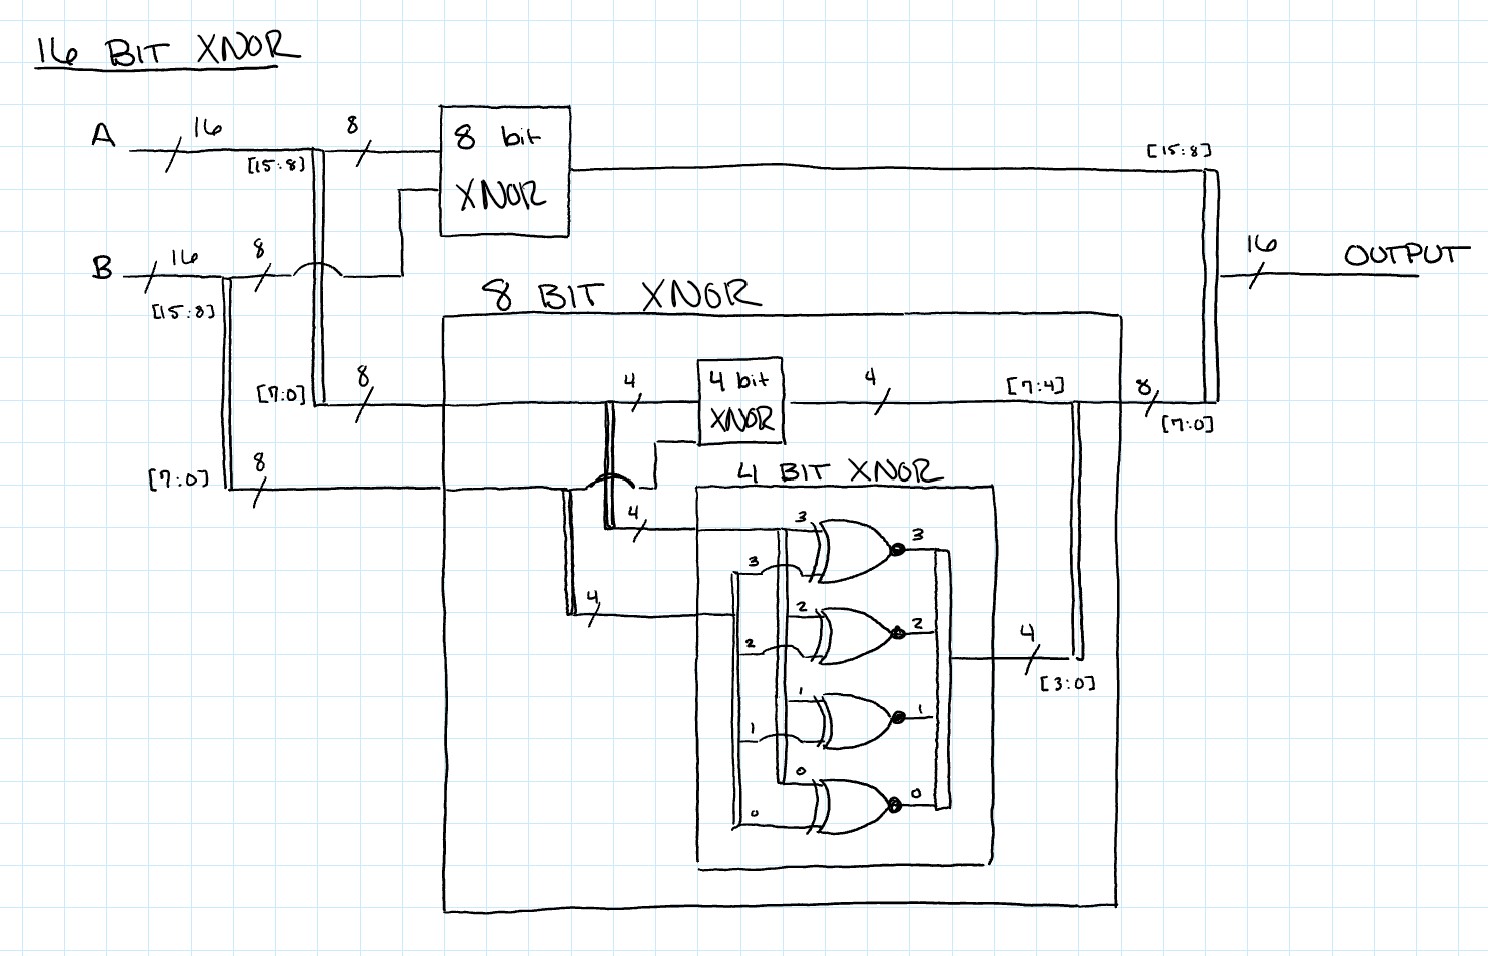 16 BIT XNOR
A
16
[15:8]
8
8 bit
XNOR
[15:8]
B
16
8
[15:8]
16
OUTPUT
8 BIT XNOR
[7:0]
8
4
4 bit
XNOR
4
[7:4]
8
[7:0]
[7:0]
8
4 BIT XNOR
4
3
3
3
4
2
2
2
4
[3:0]
1
1
1
0
0
0